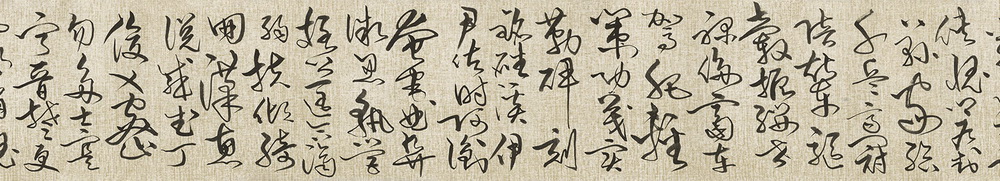 俠槐卿戶封
八縣家給
千兵高冠
陪輦驅
轂振纓世
祿侈富車
駕肥輕
策功茂實
勒碑刻
銘磻溪伊
尹佐時阿衡
奄宅曲阜
微旦孰營
桓公匡合濟
弱扶傾綺
回漢惠
說感武丁
俊乂密
勿多士寔
寧晉楚更